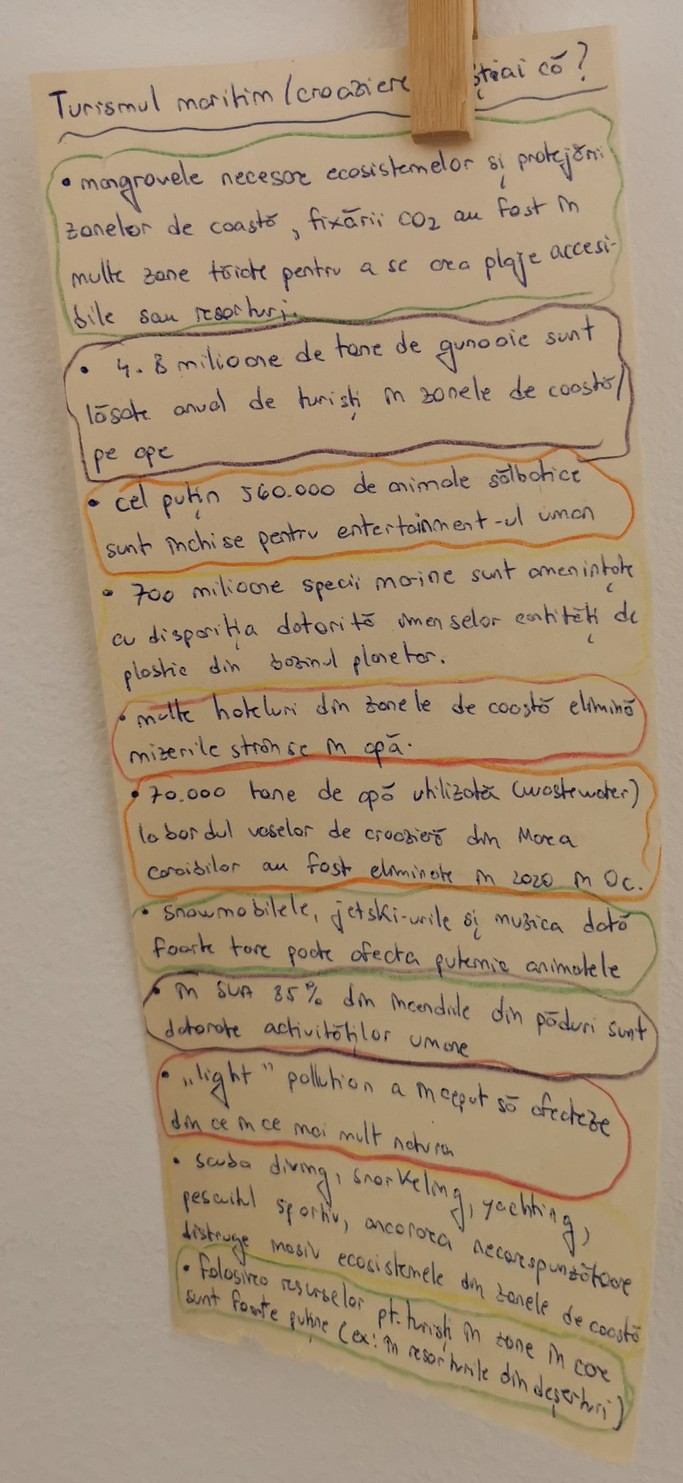 Turismul maritim (croaziere știai că?
• mangrovele necesare ecosistemelor și protejării
zonelor de coastă, fixării CO2 au fost în
multe zone tăiate pentru a se crea plaje accesi-
bile sau resorturi.
• 4.8 milioane de tone de gunoaie sunt
lăsate anual de turiști în zonele de coastă/
pe ape
• cel puțin 560.000 de animale sălbatice
sunt închise pentru entertainment-ul uman
• 700 milioane specii marine sunt amenințate
cu dispariția datorită imenselor cantități de
plastic din bazinul planetar.
• multe hoteluri din zonele de coastă elimină
mizerile strânse în apă.
• 70.000 tone de apă utilizată (wastewater)
la bordul vaselor de croazieră din Marea
Caraibilor au fost eliminate în 2020 în Oc.
• Snowmobilele, jetski-urile și muzica dată
foarte tare poate afecta puternic animalele
• în SUA 85% din incendiile din păduri sunt
datorate activităților umane
• „light" pollution a început să afecteze
din ce în ce mai mult natura
• scuba diving, snorkeling, yachting,
pescuitul sportiv, ancorarea necorespunzătoare
distruge masiv ecosistemele din zonele de coastă
• folosirea resurselor pt. turiști în zone în care
sunt foarte puține (ex: în resorturile din deșerturi)